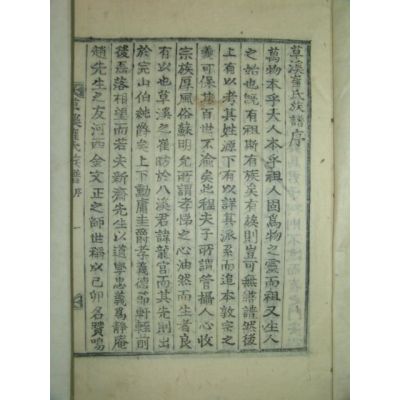 草溪崔氏族譜序
萬物本乎天人本乎祖人固爲物之靈而祖又生人
之始也旣有祖斯有族矣有族則豈可無譜然後
上有以考其姓源下有以詳其派系而追本敦宗之
義可保其百世不渝矣也程夫子所謂管攝人心收
宗族厚風俗蘇明允所謂孝悌之心油然而生者良
有以也草溪之崔昉於八溪君諱龍宮而其先則出
於完山伯純爵矣上下勳庸圭爵孝義德節軒輊前
後磊落相望而若夫新齋先生以道學忠義爲靜庵
趙先生之友河西金文正之師世稱以己卯名賢嗚
草溪崔氏族譜 序 一